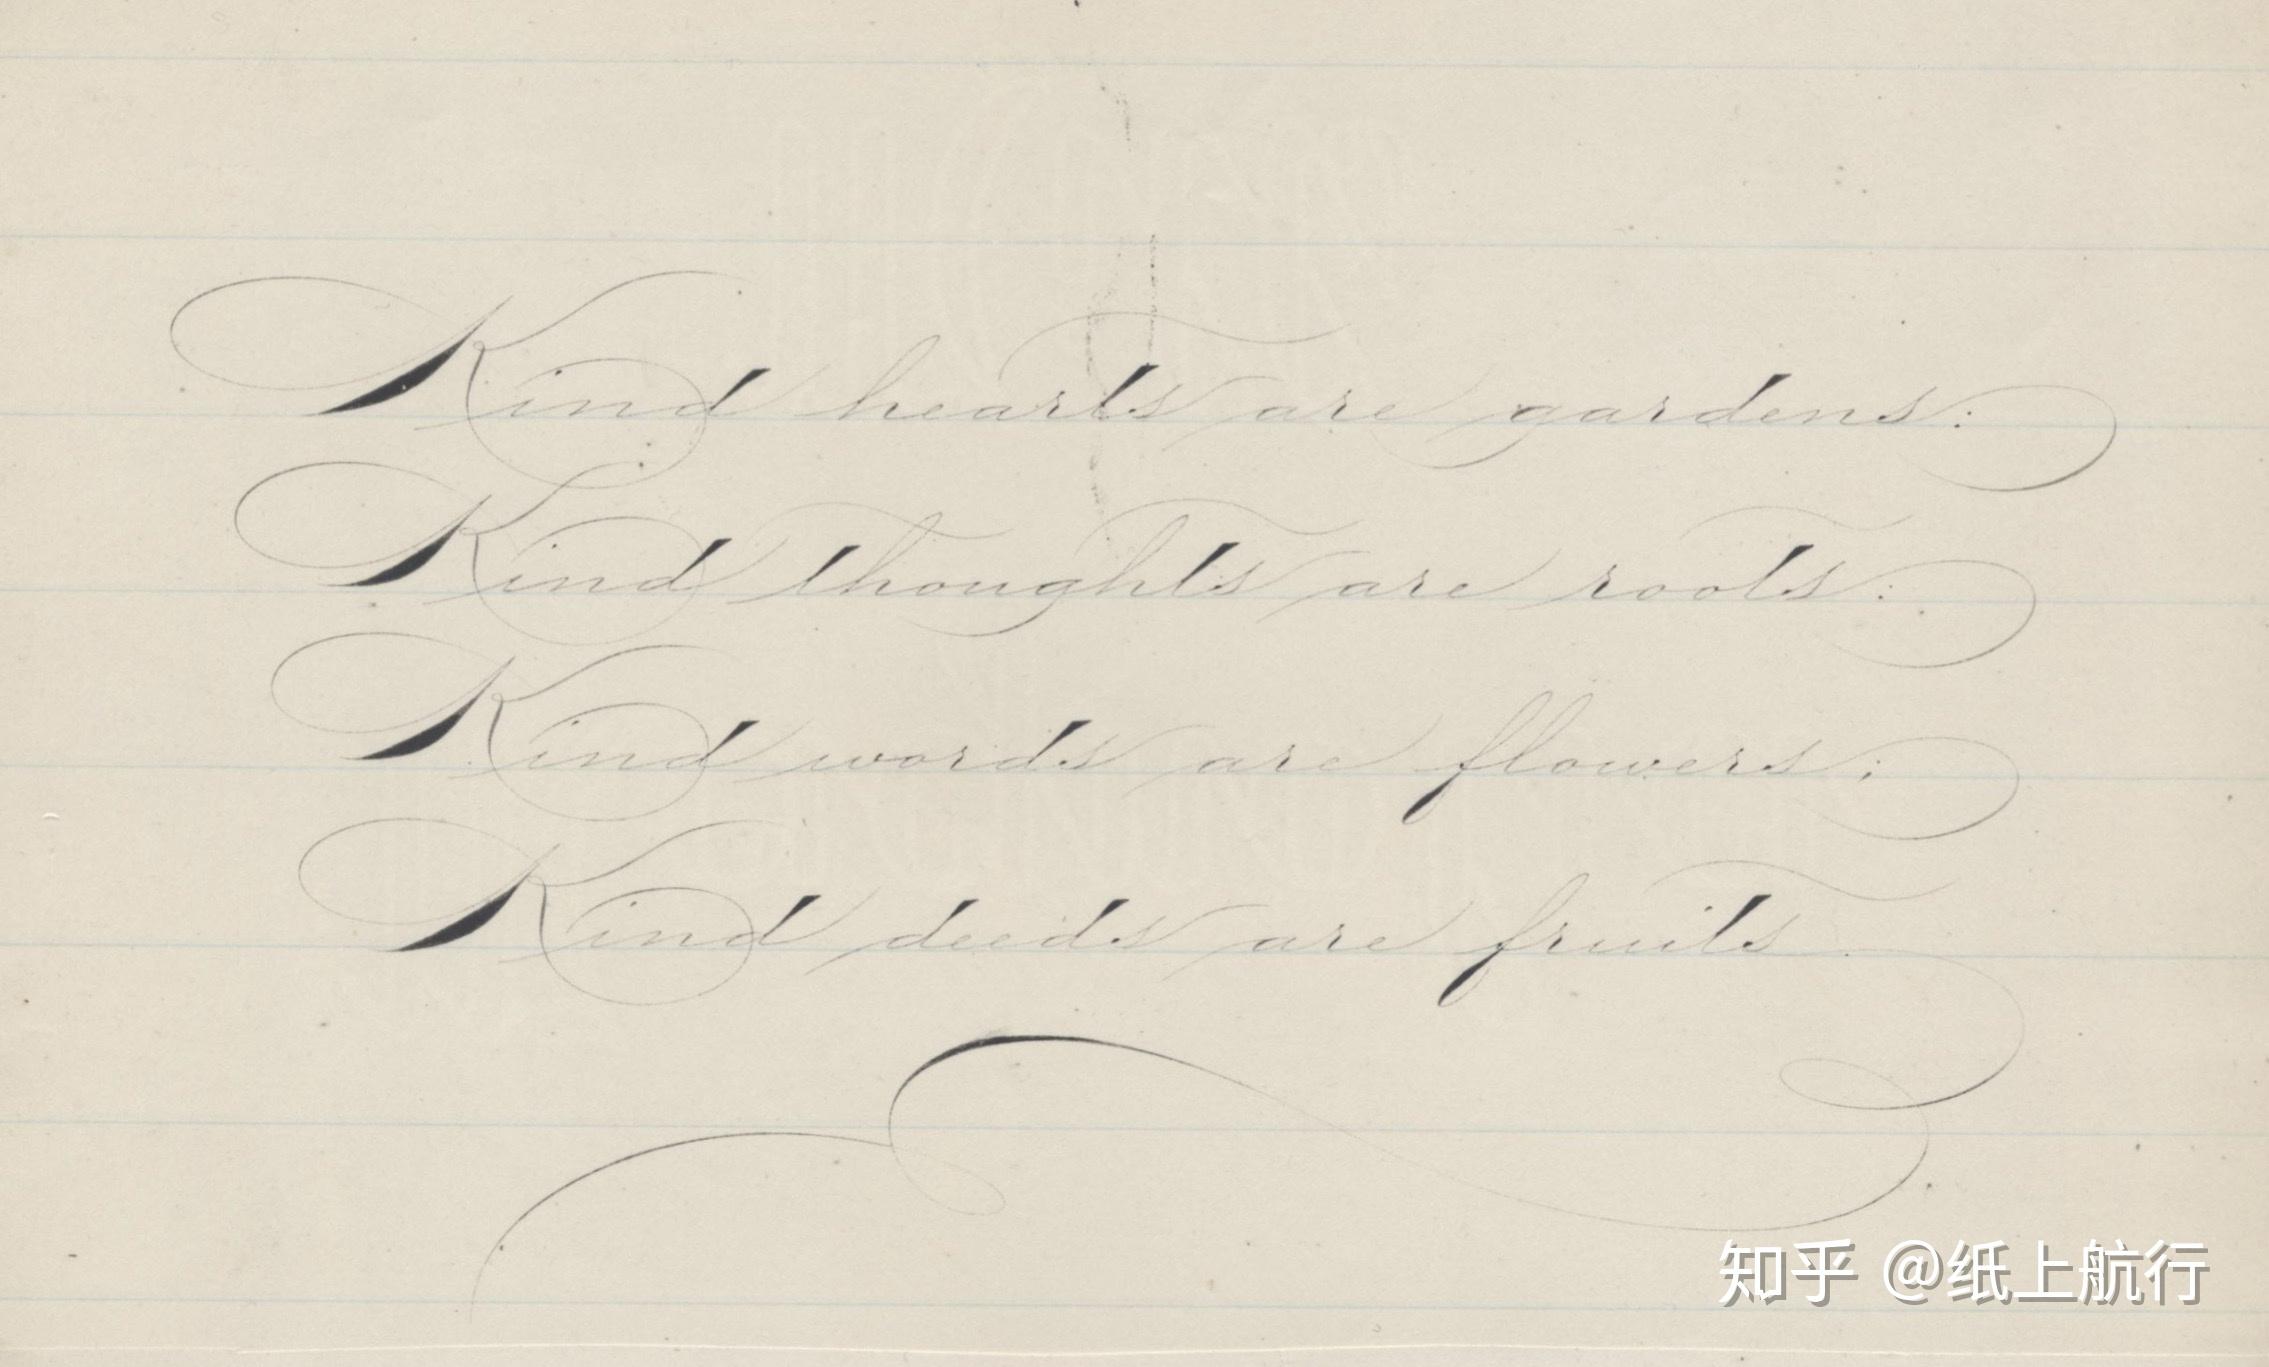 Kind hearts are gardens:
Kind thoughts are roots:
Kind words are flowers;
Kind deeds are fruits.
知乎 @纸上航行